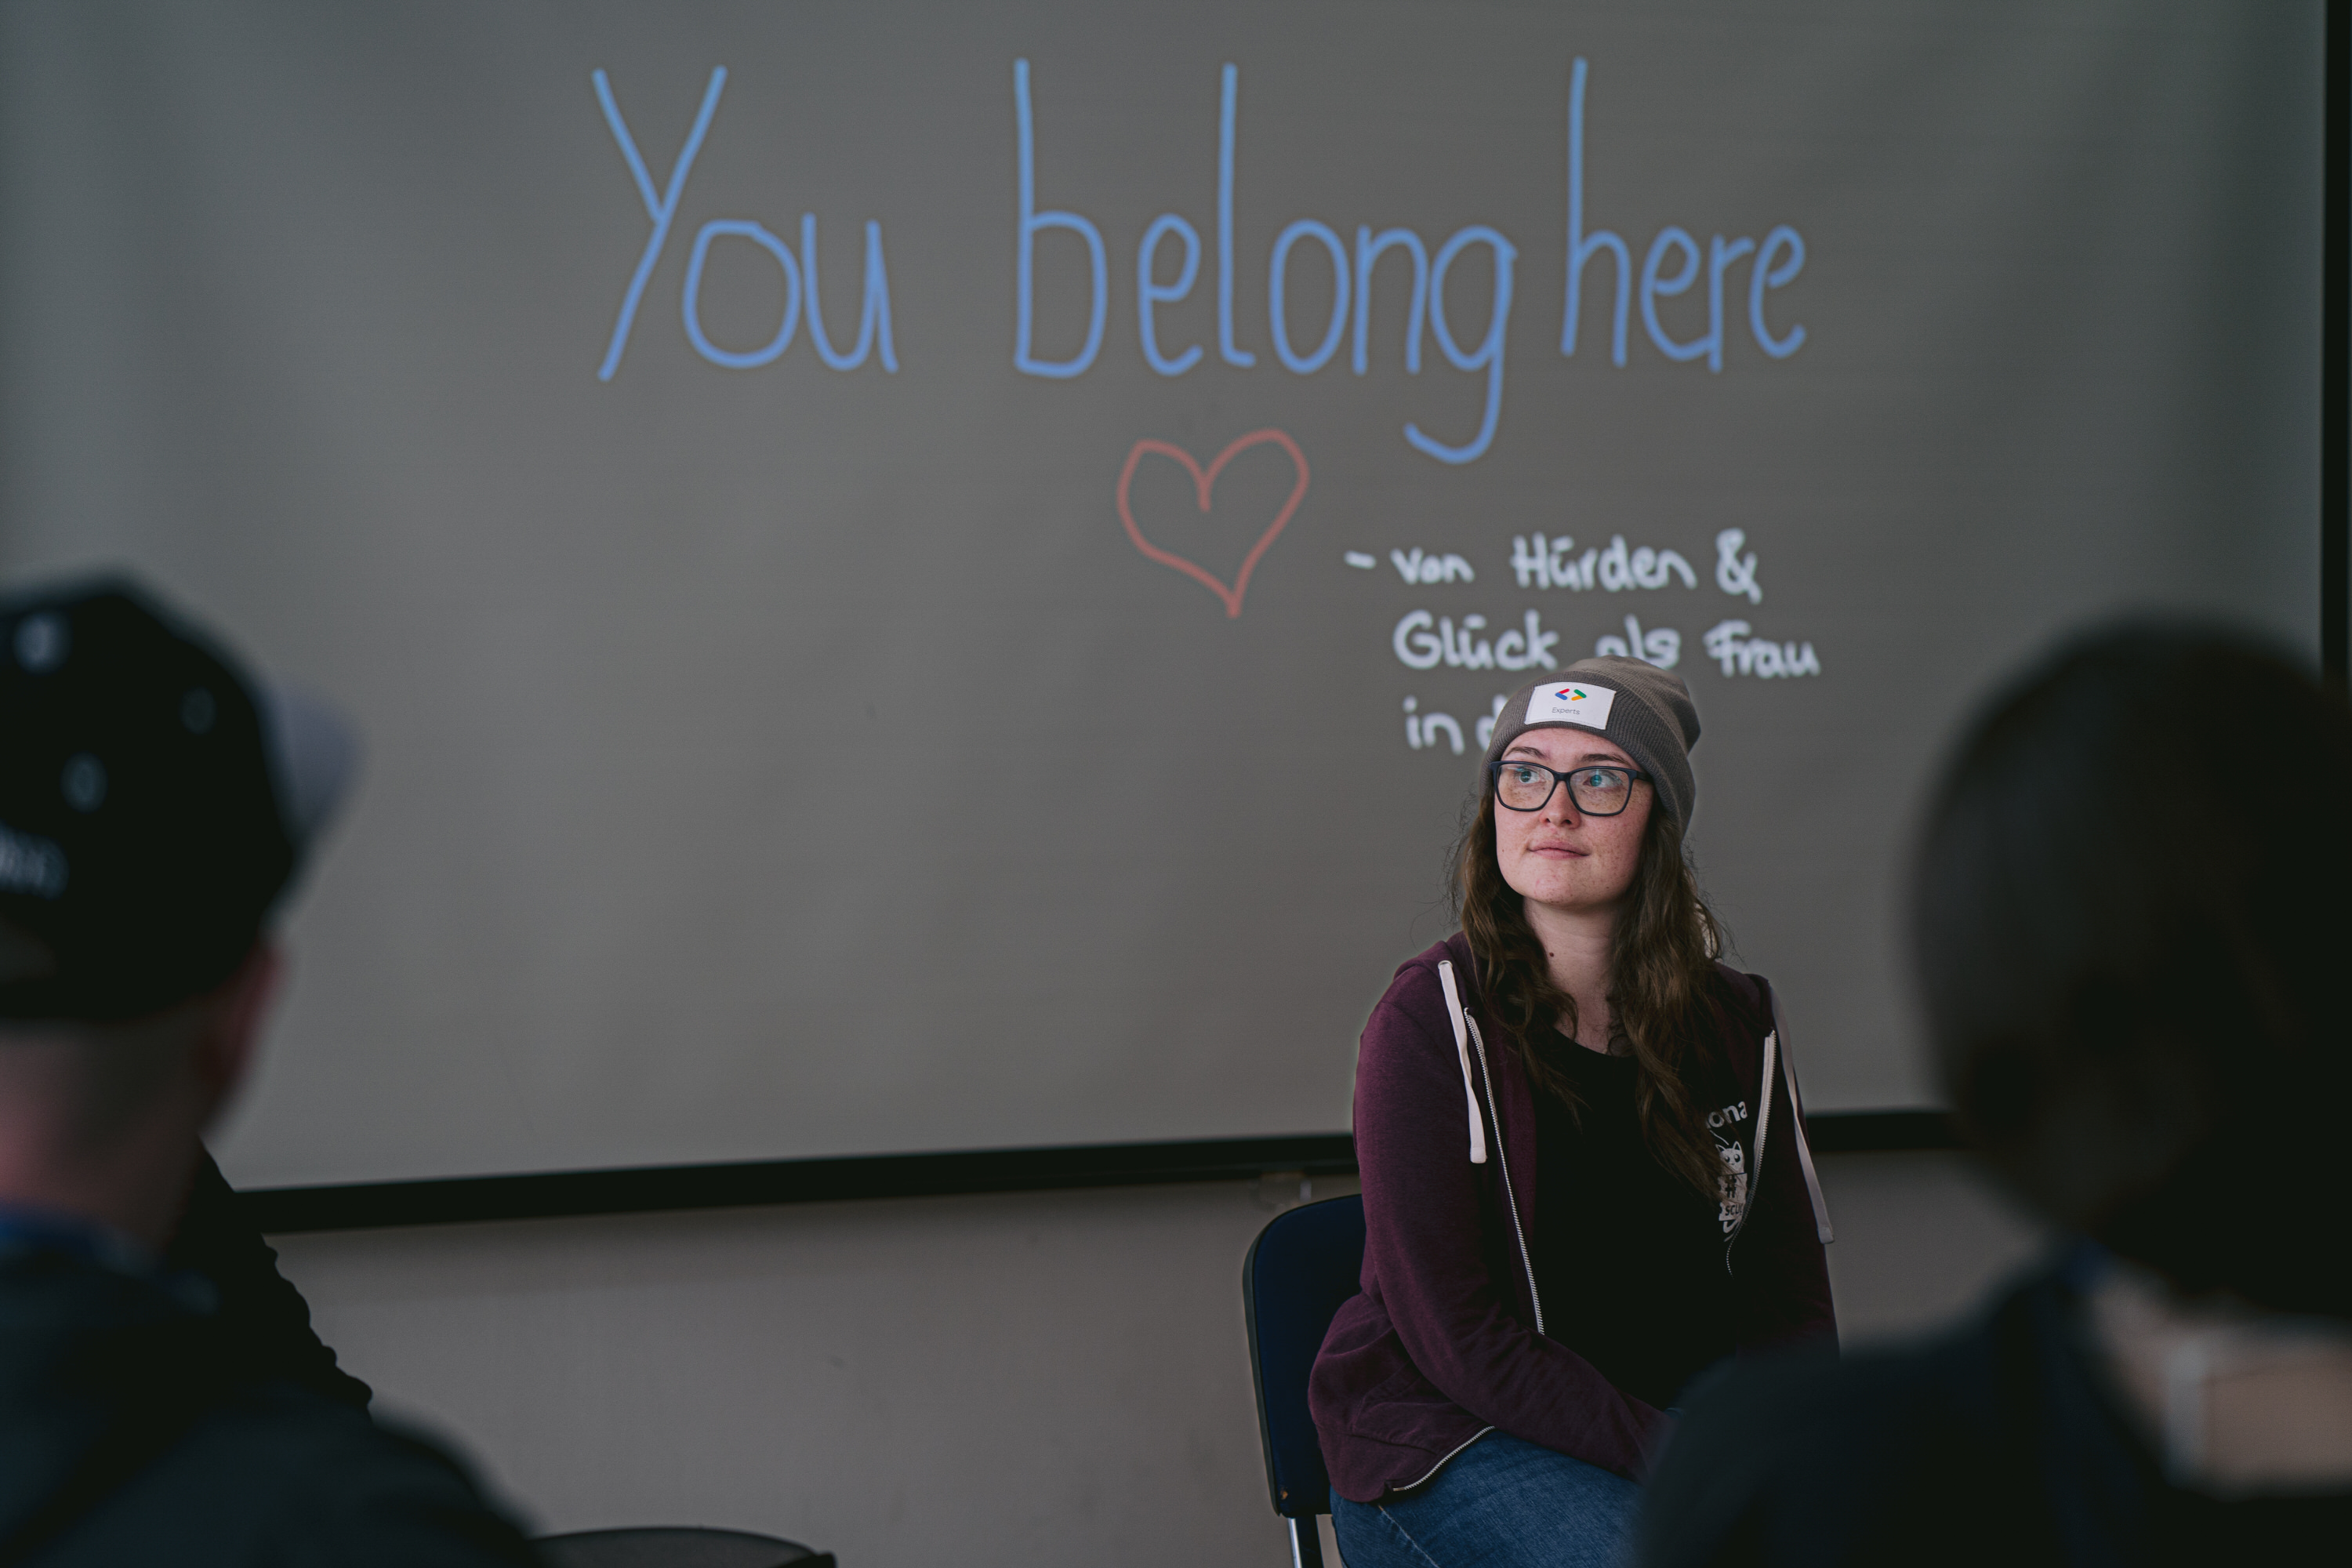 You belong here
- von Hürden &
Glück als Frau
in d
Experts
ona
#